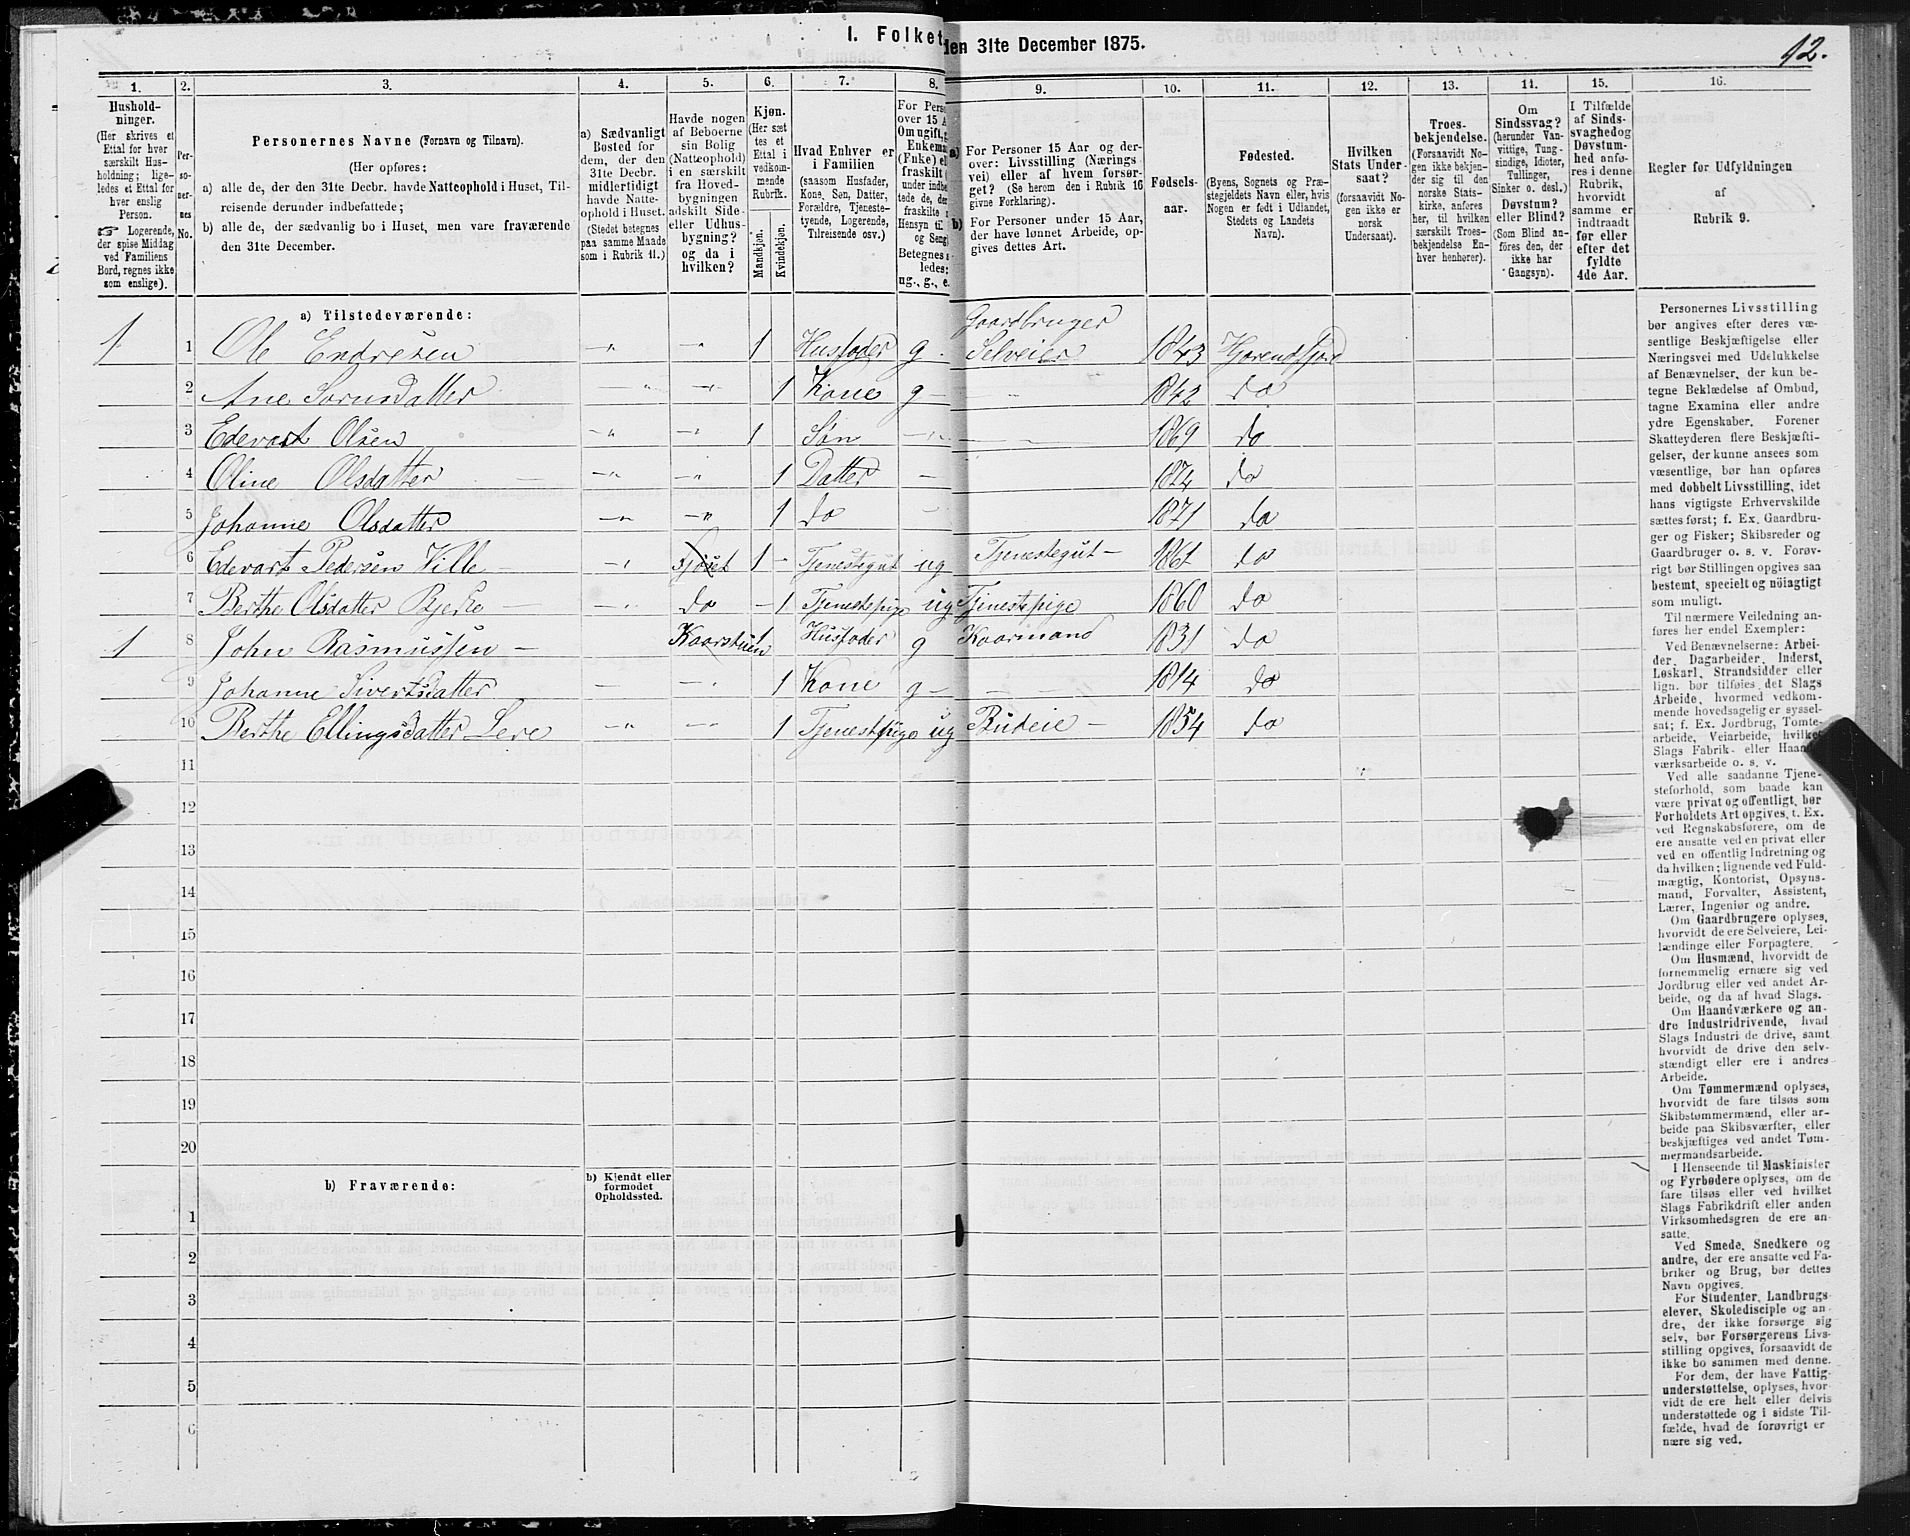 I. Folket
den 31te December 1875.
12.
1.
2.
3.
4.
5.
6.
7.
8.
9.
10.
11.
12.
13.
14.
15.
16.
Hushold-
ninger.
(Her skrives et
Ettal for hver
særskilt Hus-
holdning; lige-
ledes et Ettal for
hver enslig
Person.
☞ Logerende,
der spise Middag
ved Familiens
Bord, regnes ikke
som enslige).
Per-
so-
ner-
nes
No.
Personernes Navne (Fornavn og Tilnavn).
(Her opføres:
a) alle de, der den 31te Decbr. havde Natteophold i Huset, Til-
reisende derunder indbefattede;
b) alle de, der sædvanlig bo i Huset, men vare fraværende
den 31te December.
a) Sædvanligt
Bosted for
dem, der den
31te Decbr.
midlertidigt
havde Natte-
ophold i Huset.
(Stedet betegnes
paa samme Maade
som i Rubrik 11.)
Havde nogen
af Beboerne
sin Bolig
(Natteophold)
i en særskilt
fra Hoved-
bygningen
adskilt Side-
eller Udhus-
bygning?
og da i
hvilken?
Kjøn.
(Her sæt-
tes et
Ettal i
vedkom-
mende
Rubrik.)
Mandkjøn.
Kvindekjøn.
Hvad Enhver er
i Familien
(saasom Husfader,
Kone, Søn, Datter,
Forældre, Tjeneste-
tyende, Logerende,
Tilreisende osv.)
For Pers
over 15 A
Om ugift, g
Enkema
(Fnke) el
fraskilt
under indbe
tede de, der
fraskilte
Hensyn til
og Seng
Betegnes s
ledes:
ug., g., e.
a) For Personer 15 Aar og der-
over: Livsstilling (Nærings-
vei) eller af hvem forsør-
get? (Se herom den i Rubrik 16
givne Forklaring).
b) For Personer under 15 Aar,
der have lønnet Arbeide, op-
gives dettes Art.
Fødsels-
aar.
Fødested.
(Byens, Sognets og Præ-
stegjeldets Navn eller, hvis
Nogen er født i Udlandet,
Stedets og Landets
Navn).
Hvilken
Stats Under-
saat?
(forsaavidt No-
gen ikke er
norsk
Undersaat).
Troes-
bekjendelse.
(Forsaavidt No-
gen ikke bekjen-
der sig til den
norske Stats-
kirke, anføres
her, til hvilken
særskilt Troes-
bekjendelse En-
hver henhører).
Om
Sindssvag?
(herunder Van-
vittige, Tung-
sindige, Idioter,
Tullinger,
Sinker o. desl.)
Døvstum?
eller Blind?
(Som Blind an-
føres den, der
ikke har
Gangsyn).
I Tilfælde
af Sinds-
svaghed og
Døvstum-
hed anfø-
res i denne
Rubrik,
hvorvidt
samme er
indtraadt
før eller
efter det
fyldte
4de Aar.
Regler for Udfyldningen
af
Rubrik 9.
a) Tilstedeværende:
1 1 Ole Endresen 1 Husfader g. Gaardbruger Selveier 1843 Hjorendfjord
2 Ane Sornsdatter 1 Kone g 1842 do
3 Edevart Olsen 1 Søn 1869 do
4 Oline Olsdatter 1 Datter 1874 do
5 Johanne Olsdatter 1 do 1871 do
6 Edevart Pedersen Ville Fjöset 1 Tjenestegut ug Tjenestegut 1861 do
7 Berthe Olsdatter Bjerke do 1 Tjenestepige ug Tjenestepige 1860 do
1 8 John Rasmussen Kaarstuen 1 Husfader g Kaarmand 1831 do
9 Johanne Sivertsdatter 1 Kone g 1814 do
10 Berthe Ellingsdatter Leve 1 Tjenestpige ug Budeie 1854 do
11
12
13
14
15
16
17
18
19
20
b) Fraværende:
b) Kjendt eller
formodet
Opholdssted.
1
2
3
4
5
6
Personernes Livsstilling
bør angives efter deres væ-
sentlige Beskjæftigelse eller
Næringsvei med Udelukkelse
af Benævnelser, der kun be-
tegne Beklædelse af Ombud,
tagne Examina eller andre
ydre Egenskaber. Forener
Skatteyderen flere Beskjæfti-
gelser, der kunne ansees som
væsentlige, bør han opføres
med dobbelt Livsstilling, idet
hans vigtigste Erhvervskilde
sættes først; f. Ex. Gaardbru-
ger og Fisker; Skibsreder og
Gaardbruger o. s. v. Forøv-
rigt bør Stillingen opgives saa
bestemt, specielt og nöiagtigt
som muligt.
Til nærmere Veiledning an-
føres her endel Exempler:
Ved Benævnelserne: Arbei-
der, Dagarbeider, Inderst,
Løskarl, Strandsidder eller
lign. bør tilføies det Slags
Arbeide, hvormed vedkom-
mende hovedsagelig er syssel-
sat; f. Ex. Jordbrug, Tomte-
arbeide, Veiarbeide, hvilket
Slags Fabrik- eller Haand-
værksarbeide o. s. v.
Ved alle saadanne Tjene-
steforhold, som baade kan
være privat og offentligt, bør
Forholdets Art opgives, t. Ex.
ved Regnskabsførere, om de
ere ansatte ved en privat eller
ved en offentlig Indretning og
da hvilken; lignende ved Fuld-
mægtig, Kontorist, Opsyns-
mand, Forvalter, Assistent,
Lærer, Ingeniør og andre.
Om Gaardbrugere oplyses,
hvorvidt de ere Selveiere, Lei-
lændinge eller Forpagtere.
Om Husmænd, hvorvidt de
fornemmelig ernære sig ved
Jordbrug eller ved andet Ar-
beide, og da af hvad Slags.
Om Haandværkere og an-
dre Industridrivende, hvad
Slags Industri de drive, samt
hvorvidt de drive den selv-
stændigt eller ere i andres
Arbeide.
Om Tømmermænd oplyses,
hvorvidt de fare tilsøs som
Skibstømmermænd, eller ar-
beide paa Skibsværfter, eller
beskjæftiges ved andet Tøm-
mermandsarbeide.
I Henseende til Maskinister
og Fyrbødere oplyses, om de
fare tilsøs eller ved hvilket
Slags Fabrikdrift eller anden
Virksomhedsgren de ere an-
satte.
Ved Smede, Snedkere og
andre, der ere ansatte ved Fa-
briker og Brug, bør dettes
Navn opgives.
For Studenter, Landbrugs-
elever, Skoledisciple og an-
dre, der ikke forsørge sig
selv, bør Forsørgerens Livs-
stilling opgives, forsaavidt de
ikke bo sammen med denne.
For dem, der have Fattig-
understøttelse, oplyses, hvor-
vidt de ere helt eller delvis
understøttede og i sidste Til-
fælde, hvad de forøvrigt er-
nære sig ved.